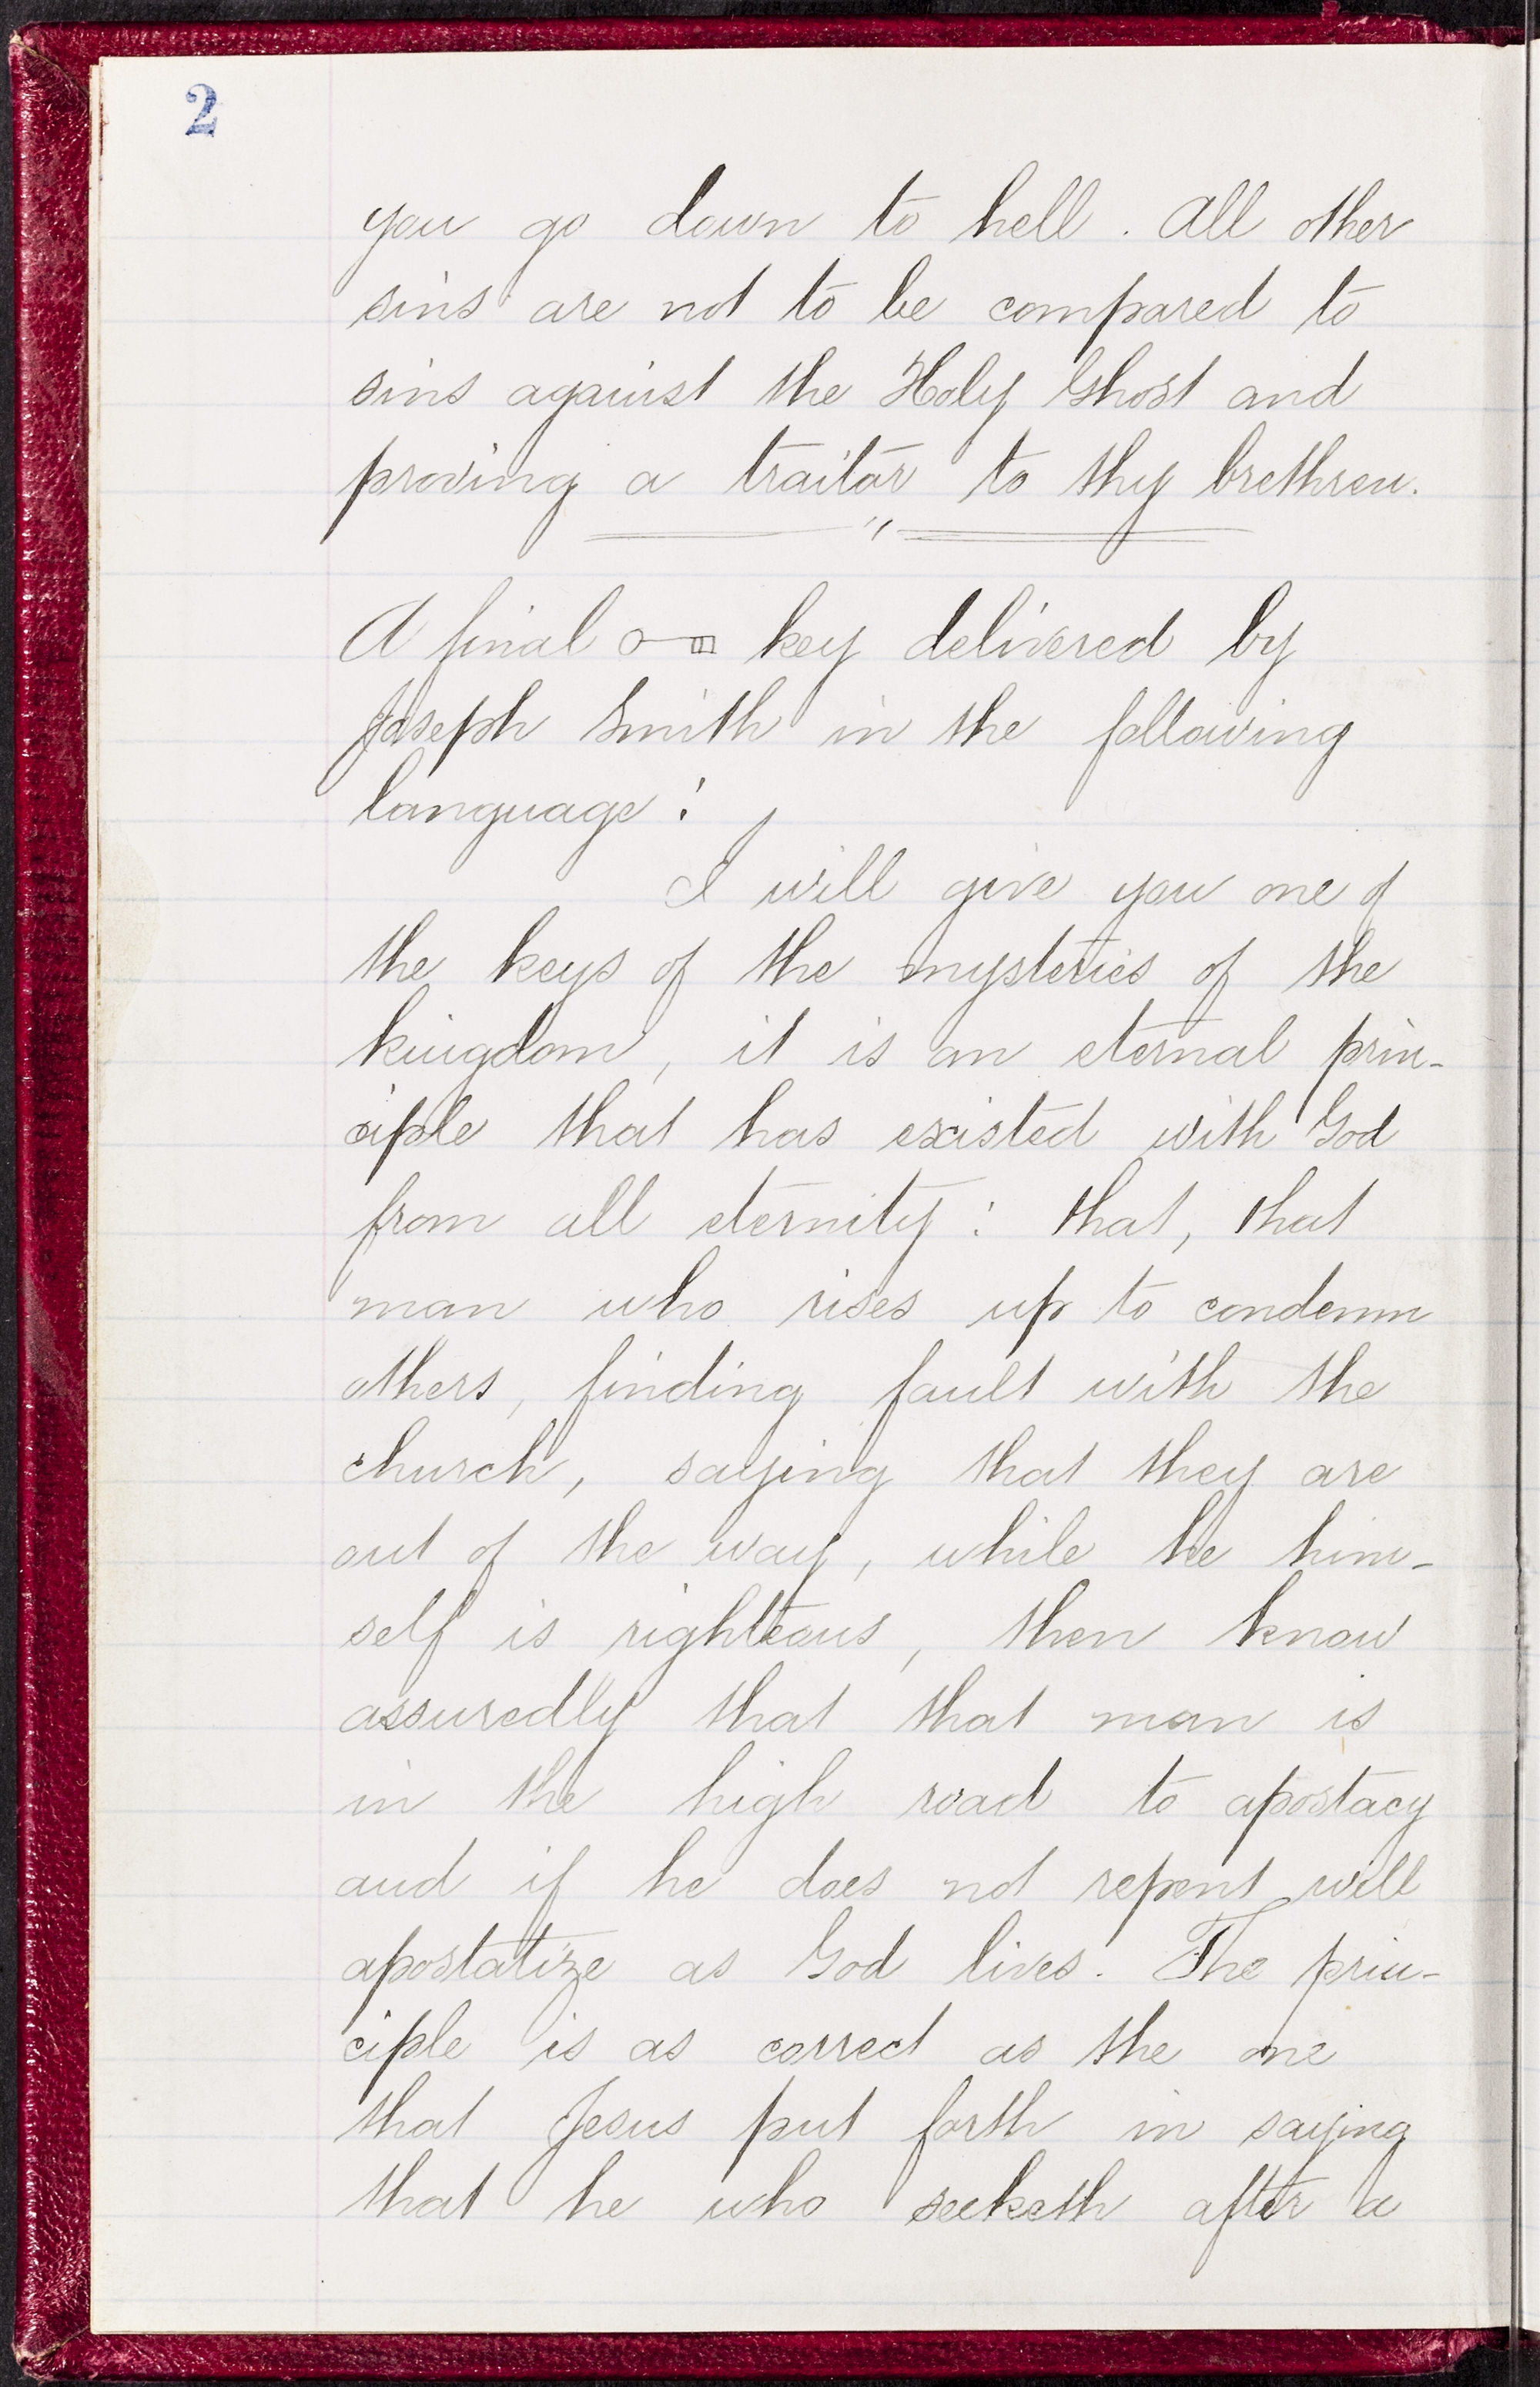 2
you go down to hell. All other
sins are not to be compared to
sins against the Holy Ghost and
proving a traitor to thy brethren.
A final key delivered by
Joseph Smith in the following
language:
I will give you one of
the keys of the mysteries of the
kingdom, it is an eternal prin-
ciple that has existed with God
from all eternity: that, that
man who rises up to condemn
others, finding fault with the
church, saying that they are
out of the way, while he him-
self is righteous, then know
assuredly that that man is
in the high road to apostacy
and if he does not repent will
apostatize as God lives. The prin-
ciple is as correct as the one
that Jesus put forth in saying
that he who seeketh after a